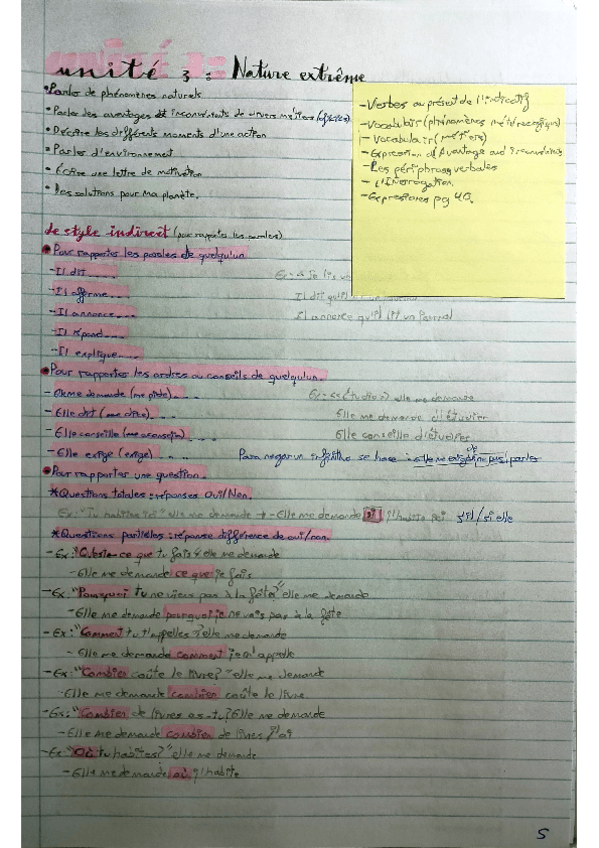 unité 3 : Nature extrême
•Parler de phénomènes naturels
•Parler les aventages et inconvénients de divers métiers
•Décrire les différents moments d'une action
•Parler d'environnement
•Écrire une lettre de motivation
•Des solutions pour ma planète.
-Verbes au présent de l'indicatif
-Vocabulair (phénomènes météreologique)
-Vocabulair (métiers)
-Expression of Avantage and inconvénients
-Les périphrases verbales
-L'interrogation
-Expresiones pg 40.
Le style indirect (pour rapporter les paroles)
•Pour rapporter les paroles de quelqu'un
-Il dit.....
Ex: «Je lis un
-Il affirme....
Il dit qu'il
-Il annonce....
Il annonce qu'il lit un journal
-Il répond....
-Il explique....
•Pour rapporter les ordres ou conseils de quelqu'un.
-Elle me demande (me pide)....
Ex: «Étudie» elle me demande
-Elle dit (me dice)....
Elle me demande d'étudier
-Elle conseille (me aconseja)....
Elle conseille d'étudier
-Elle exige (exige)....
Para negar un infinitivo se hace: elle me exige de ne pas parler
•Pour rapporter une question.
*Questions totales: réponses Oui/Non.
Ex: "Tu habites ici" elle me demande → -Elle me demande si j'habite ici s'il/si elle
*Questions partielles: réponse différence de oui/non.
-Ex: "Qu'est-ce que tu fais?" elle me demande
-Elle me demande ce que je fais
-Ex: "Pourquoi tu ne viens pas à la fête?" elle me demande
-Elle me demande pourquoi je ne vais pas à la fête
-Ex: "Comment tu t'appelles?" elle me demande
-Elle me demande comment je m'appelle
-Ex: "Combien coûte le livre?" elle me demande
-Elle me demande combien coûte le livre
-Ex: "Combien de livres as-tu? Elle me demande
-Elle me demande combien de livres j'ai
-Ex: "Où tu habites?" elle me demande
-Elle me demande où j'habite
5